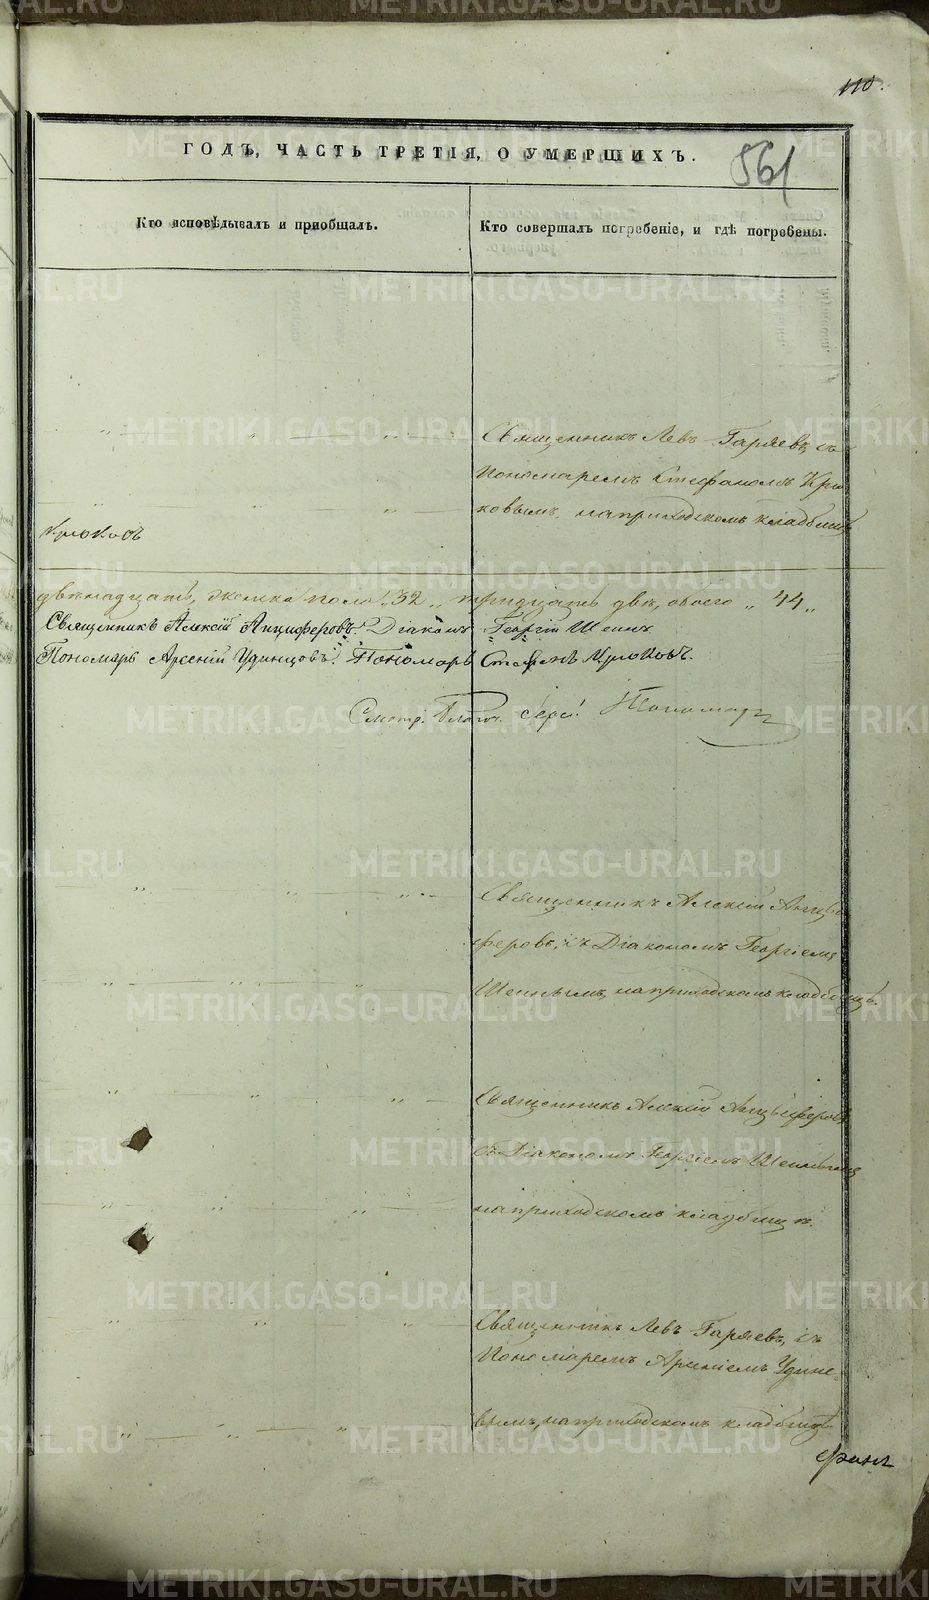 110.
ГОДЪ, ЧАСТЬ ТРЕТІЯ, О УМЕРШИХЪ.
561
Кто исповѣдывалъ и пріобщалъ.
Кто совершалъ погребеніе, и гдѣ погребены.
Священникъ Левъ Гаряевъ, съ
Пономаремъ Стефаномъ Крю
ковымъ, на приходскомъ кладбищѣ
Крюковъ
двѣнадцать, женска пола „32„ тридцать два, обоего „44„
Священникъ Алексій Анциферовъ. Діаконъ Георгій Шеинъ.
Пономарь Арсеній Удинцовъ. Пономарь Стефанъ Крюковъ.
Смотр. Благоч. Сер. Пономар
Священникъ Алексій Анцы
феровъ, съ Діакономъ Георгіемъ
Шеинымъ, на приходскомъ кладбищѣ.
Священникъ Алексій Анцыферовъ
съ Діакономъ Георгіемъ Шеинымъ
на приходскомъ кладбищѣ.
Священникъ Левъ Гаряевъ, съ
Пономаремъ Арсеніемъ Удинц-
вымъ, на приходскомъ кладбищѣ
METRIKI.GASO-URAL.RU